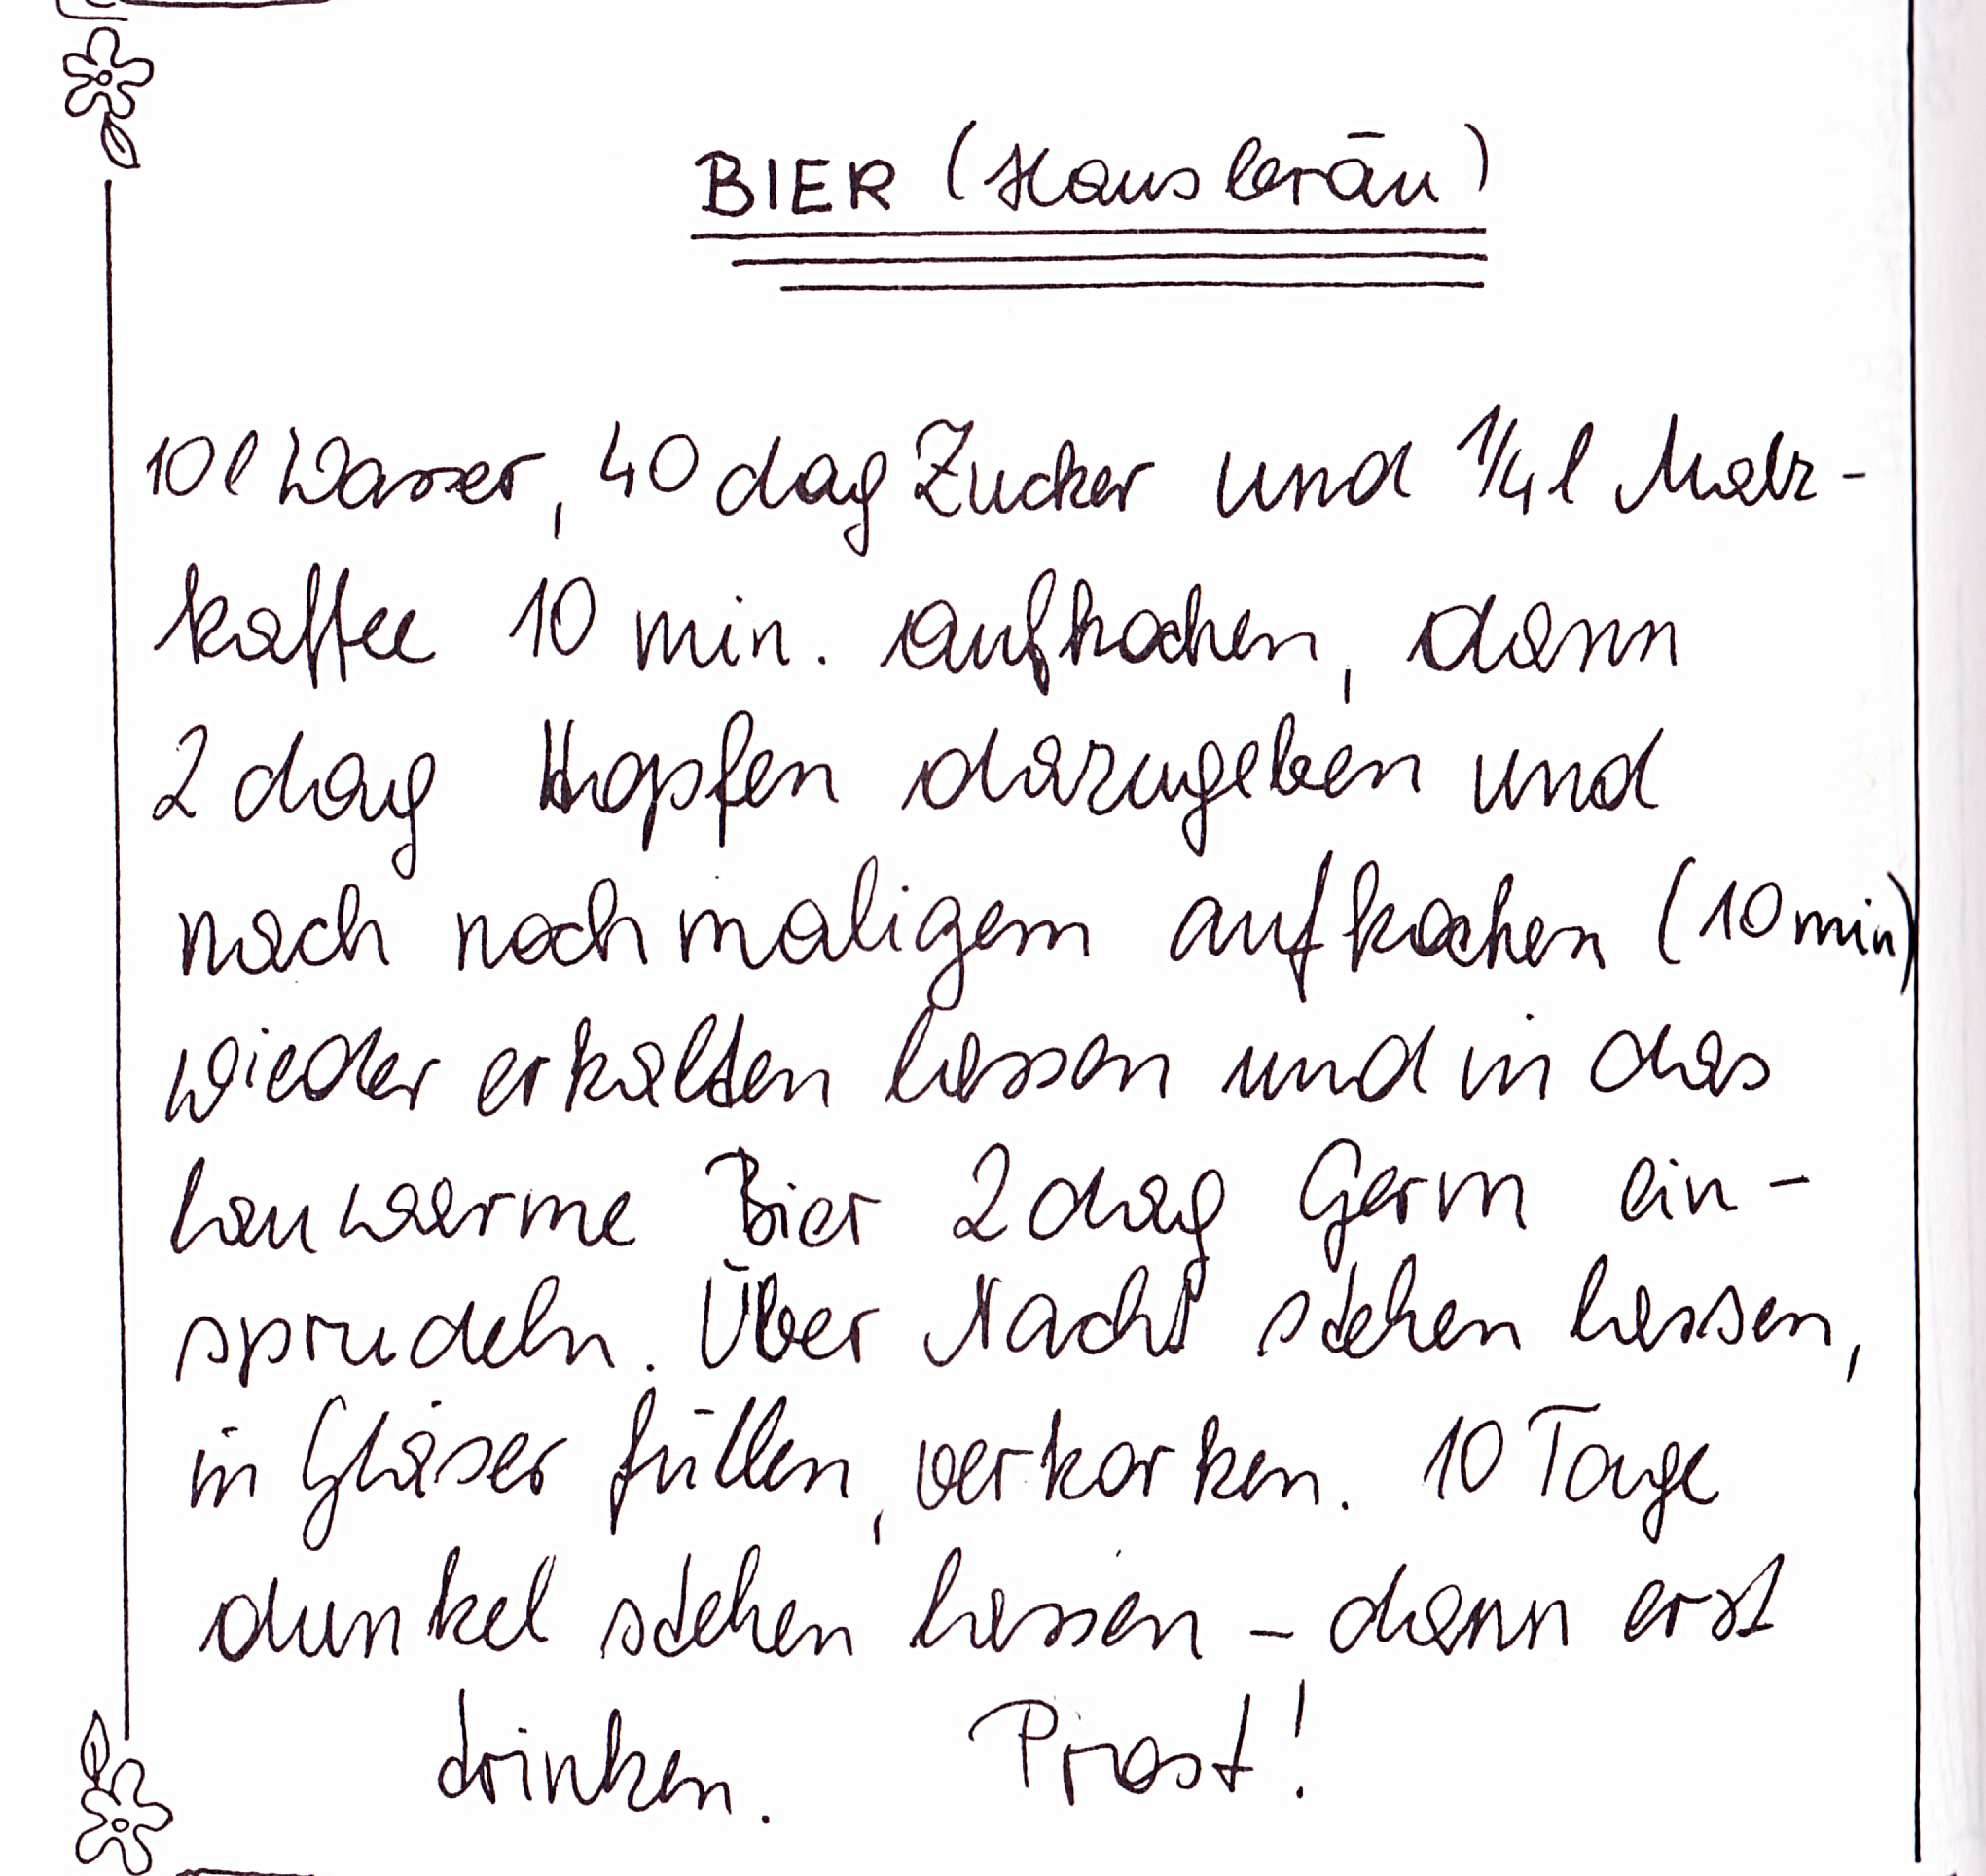 BIER (Hausbräu)
10 l Wasser, 40 dag Zucker und 1/4 l Malz-
kaffee 10 min. aufkochen, dann
2 dag Hopfen dazugeben und
nach nochmaligem aufkochen (10 min)
wieder erkalten lassen und in das
lauwarme Bier 2 dag Germ ein-
sprudeln. Über Nacht stehen lassen,
in Gläser füllen, verkorken. 10 Tage
dunkel stehen lassen – dann erst
trinken. Prost!